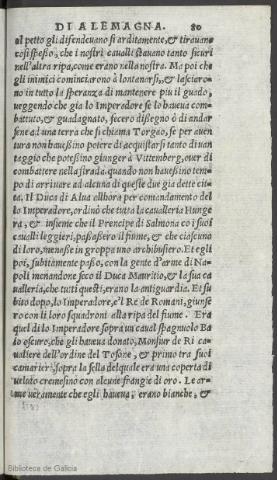 DI ALEMAGNA. 80
al petto gli difendeuano si arditamente, & tirauano
cosi spesso, che i nostri caualli stauano tanto sicuri
nell'altra ripa, come erano nella nostra. Ma poi che
gli inimici cominciarono à lontanarsi, & lasciaro-
no in tutto la speranza di mantenere piu il guado,
ueggendo che gia lo Imperadore se lo haueua com-
battuto, & guadagnato, fecero disegno ò di andar
sene ad una terra che si chiama Torgao, se per auen
tura non hauessino potere di acquistarsi tanto di uan
taggio che potessino giunger à Vittenberg, ouer di
combattere nella strada, quando non hauessino tem-
po di arriuare ad alcuna di queste due gia dette citta.
Il Duca di Alua allhora per comandamento del
lo Imperadore, ordinò che tutta la caualleria Hunghe
ra, & insieme che il Prencipe di Salmona co i suoi
caualli leggieri, passassero il fiume, & che ciascuno
di loro, menasse in groppa uno archibusiero. Et egli
poi, subitamente passò, con la gente d'arme di Na-
poli menandone seco il Duca Mauritio, & la sua ca
ualleria, che tutti questi, erano la antiguardia. Et su
bito dopo, lo Imperadore, e'l Re de Romani, giunse
ro con li loro squadroni alla ripa del fiume. Era
quel di lo Imperadore sopra un caual spagnuolo Ba
io oscuro, che gli haueua donato, Monsiur de Ri ca-
ualiere dell'ordine del Tosone, & primo tra suoi
camarieri, sopra la sella del quale era una coperta di
uelato cremesino con alcune frangie di oro. Le ar-
me ueramente che egli haueua, erano bianche, &
Biblioteca de Galicia